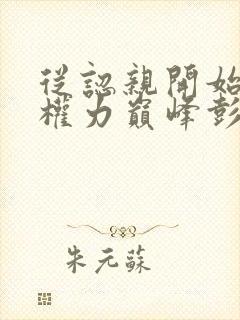 從認親開始
權力巔峰彭
朱元蘇